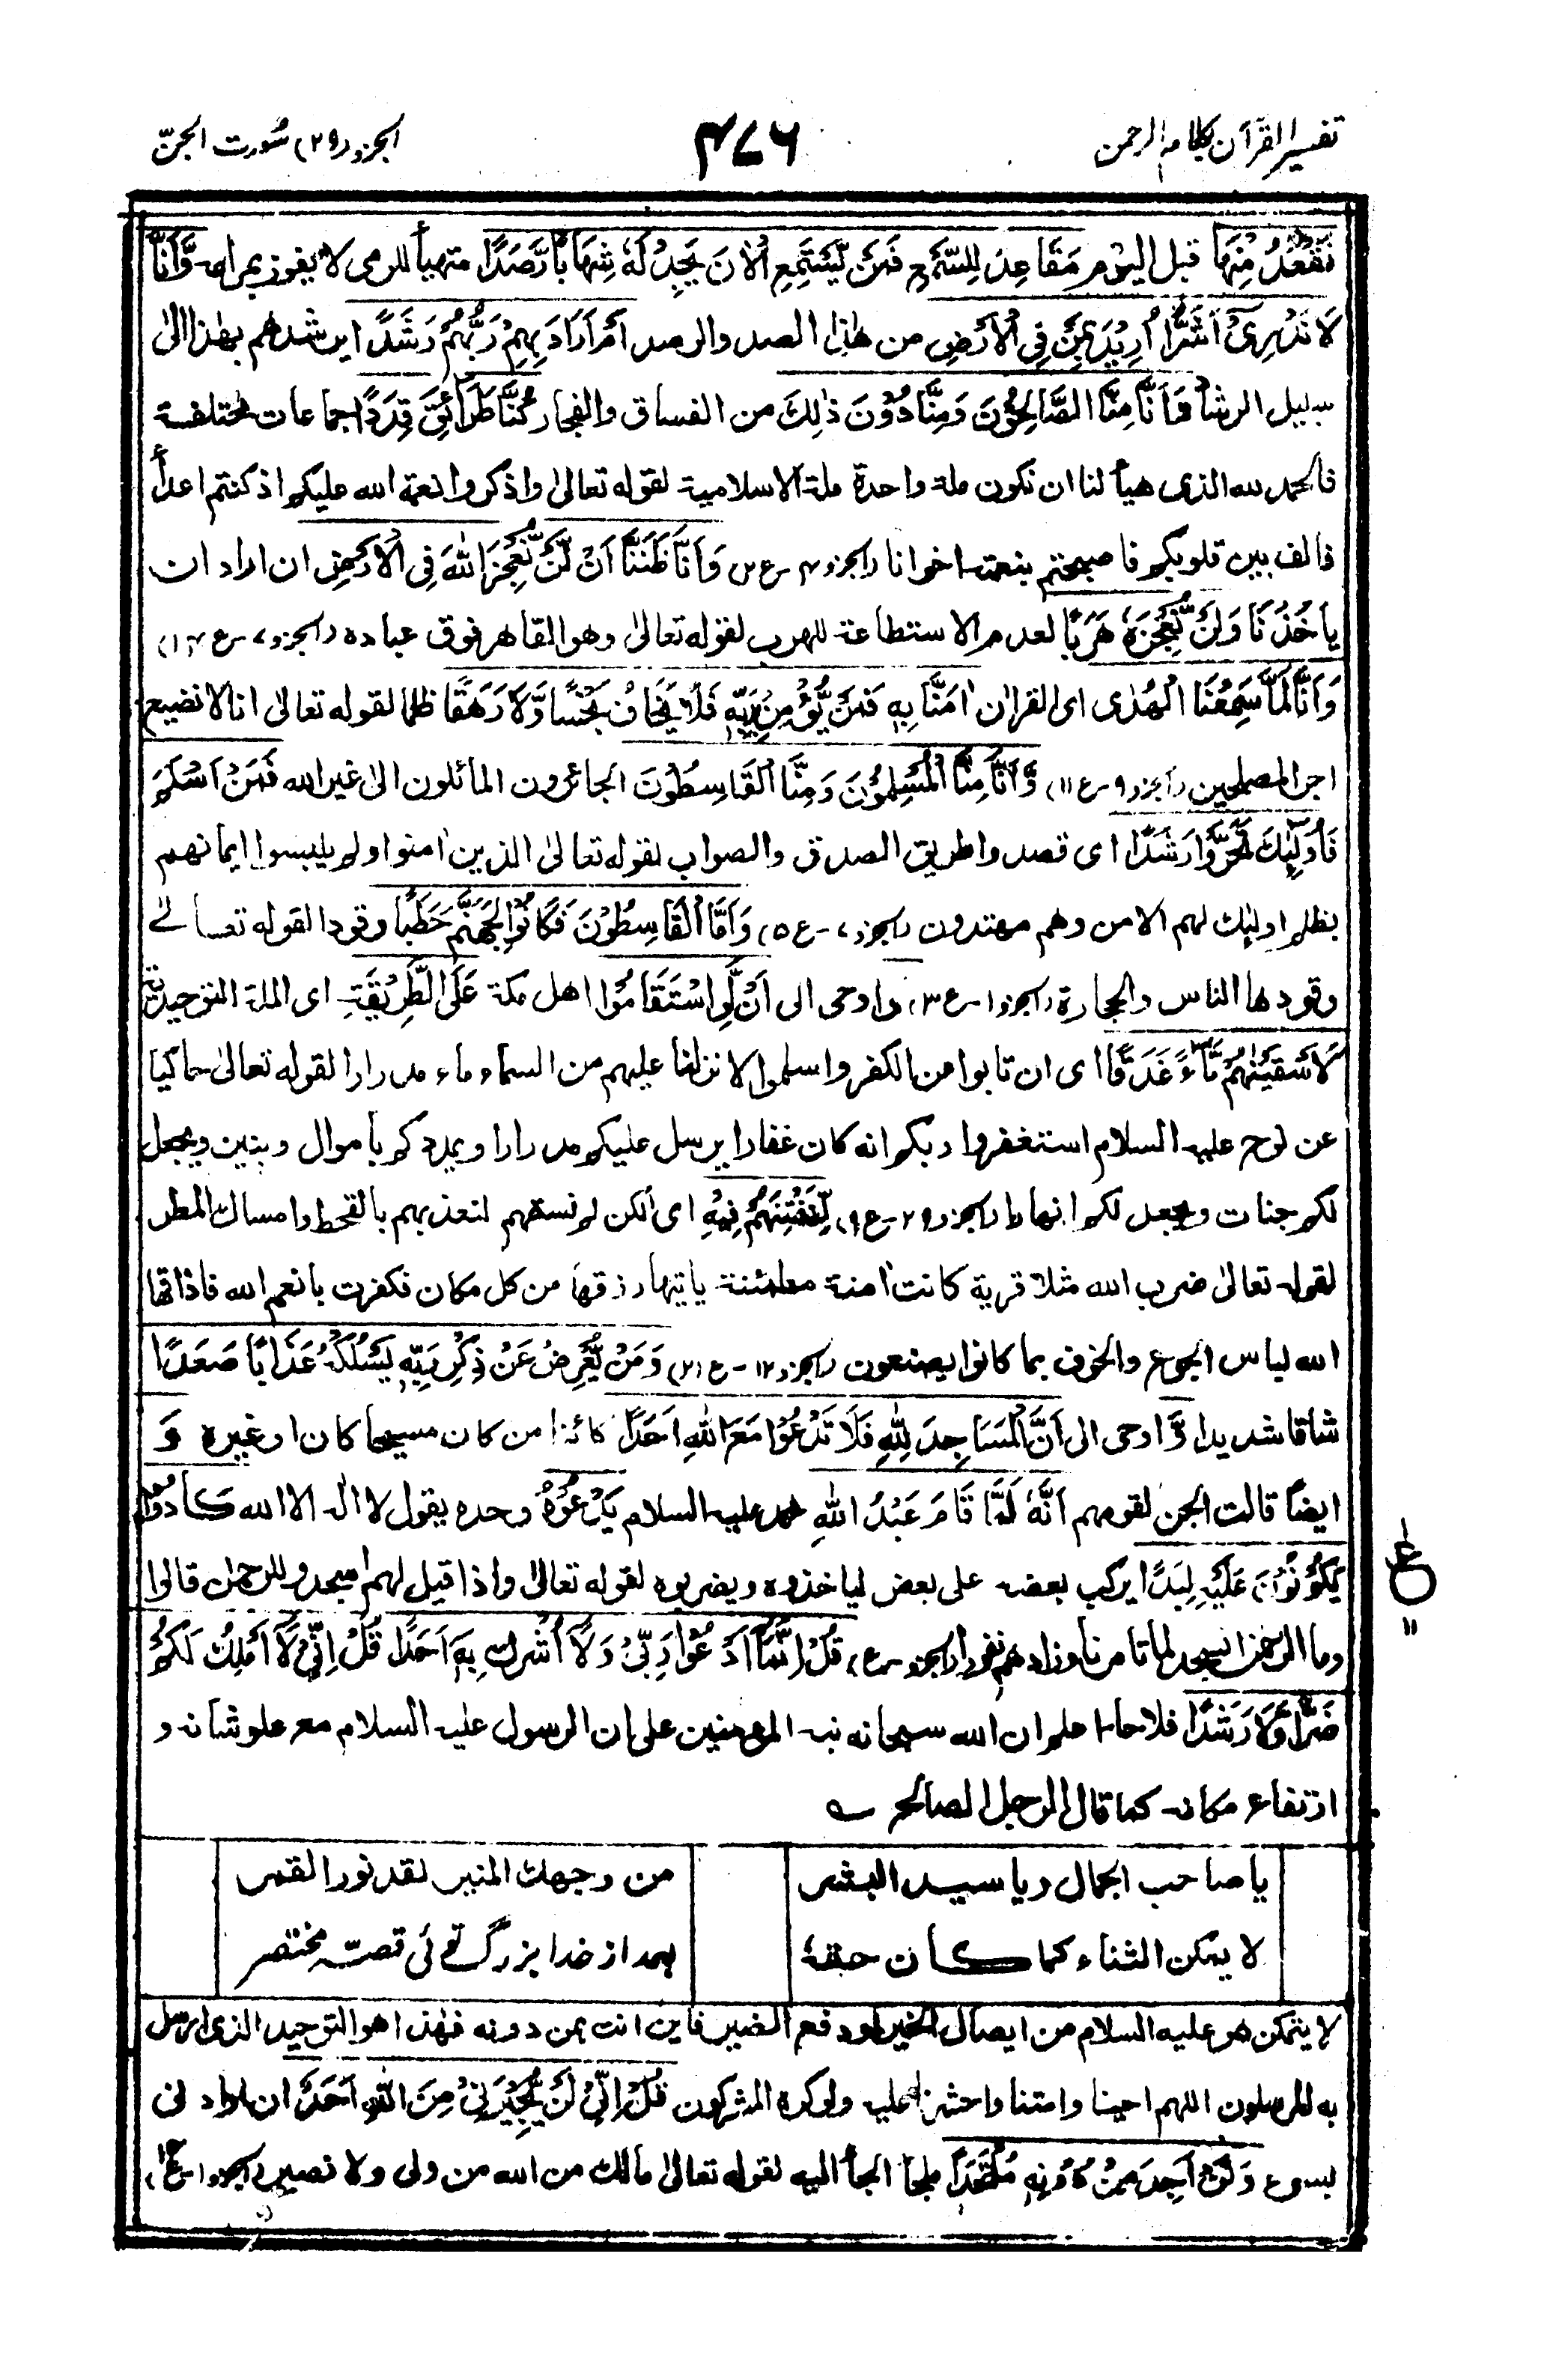 تفسیر القرآن بکلام الرحمن
۴۷۶
الجزو (۲۹) سُورت الجنّ
نَقْعُدُ مِنْهَا قبل اليوم مَقَاعِدَ لِلسَّمْعِ فَمَنْ يَّسْتَمِعِ الْاٰنَ يَجِدْ لَهٗ شِهَابًا رَّصَدًا متهيأ للرمى لا يفوز بمرامه وَّاَنَّا
لَا نَدْرِىْٓ اَشَرٌّ اُرِيْدَ بِمَنْ فِى الْاَرْضِ من هٰذا الصد والرصد اَمْ اَرَادَ بِهِمْ رَبُّهُمْ رَشَدًا اى رشدهم بهٰذا الىٰ
سبيل الرشاد وَاَنَّا مِنَّا الصَّالِحُوْنَ وَمِنَّا دُوْنَ ذٰلِكَ من الفساق والفجار كُنَّا طَرَآئِقَ قِدَدًا جماعات مختلفة
فالحمد لله الذى هيأ لنا ان نكون ملة واحدة ملة الاسلامية لقوله تعالىٰ واذكروا نعمة الله عليكم اذ كنتم اعدأ
فالف بين قلوبكم فاصبحتم بنعمته اخوانا (الجزو ۴ - ع ۲) وَاَنَّا ظَنَنَّآ اَنْ لَّنْ نُّعْجِزَ اللهَ فِى الْاَرْضِ ان اراد ان
ياخُذَنَا وَلَنْ نُّعْجِزَهٗ هَرَبًا لعدم الاستطاعة للهرب لقوله تعالىٰ وهو القاهر فوق عباده (الجزو ۷ - ع ۱۴)
وَاَنَّا لَمَّا سَمِعْنَا الْهُدٰى اى القرآن اٰمَنَّا بِهٖ فَمَنْ يُّؤْمِنْۢ بِرَبِّهٖ فَلَا يَخَافُ بَخْسًا وَّلَا رَهَقًا ظلما لقوله تعالىٰ انا لا نضيع
اجر المصلحين (الجزو ۹ - ع ۱۱) وَّاَنَّا مِنَّا الْمُسْلِمُوْنَ وَمِنَّا الْقَاسِطُوْنَ الجائرون المائلون الىٰ غير الله فَمَنْ اَسْلَمَ
فَاُولٰٓئِكَ تَحَرَّوْا رَشَدًا اى قصدوا طريق الصدق والصواب لقوله تعالىٰ الذين اٰمنوا ولم يلبسوا ايمانهم
بظلم اولٰئك لهم الامن وهم مهتدون (الجزو ۷ - ع ۱۵) وَاَمَّا الْقَاسِطُوْنَ فَكَانُوْا لِجَهَنَّمَ حَطَبًا وقودا لقوله تعالےٰ
وقودها الناس والحجارة (الجزو ۱ - ع ۳) واوحى الى اَنْ لَّوِ اسْتَقَامُوْا اهل مكة عَلَى الطَّرِيْقَةِ اى الملة التوحيدية
لَاَسْقَيْنٰهُمْ مَّآءً غَدَقًا اى ان تابوا من الكفر واسلموا لانزلنا عليهم من السماء ماء مدرارا لقوله تعالىٰ حاكيا
عن نوح عليه السلام استغفروا ربكم انه كان غفارا يرسل عليكم مدرارا ويمددكم باموال وبنين ويجعل
لكم جنات ويجعل لكم انهارا (الجزو ۲۹ - ع ۹) لِّنَفْتِنَهُمْ فِيْهِ اى لكن لم نسقهم لنعذبهم بالقحط وامساك المطر
لقوله تعالىٰ ضرب الله مثلا قرية كانت اٰمنة مطمئنة ياتيها رزقها من كل مكان فكفرت بانعم الله فاذاقها
الله لباس الجوع والخوف بما كانوا يصنعون (الجزو ۱۴ - ع ۲۱) وَمَنْ يُّعْرِضْ عَنْ ذِكْرِ رَبِّهٖ يَسْلُكْهُ عَذَابًا صَعَدًا
شاقا شديدا وَّاوحى الى اَنَّ الْمَسَاجِدَ لِلّٰهِ فَلَا تَدْعُوْا مَعَ اللهِ اَحَدًا كائنا من كان مسيحا كان او غيره وَ
ايضًا قالت الجن لقومهم اَنَّهٗ لَمَّا قَامَ عَبْدُ اللهِ محمد عليه السلام يَدْعُوْهُ وحده يقول لا الٰه الا الله كَادُوْا
يَكُوْنُوْنَ عَلَيْهِ لِبَدًا يركب بعضه على بعض لياخذوه ويضربوه لقوله تعالىٰ واذا قيل لهم اسجدوا للرحمٰن قالوا
وما الرحمٰن انسجد لما تامرنا وزادهم نفورا (الجزو - ع) قُلْ اِنَّمَآ اَدْعُوْا رَبِّىْ وَلَآ اُشْرِكُ بِهٖٓ اَحَدًا قُلْ اِنِّىْ لَآ اَمْلِكُ لَكُمْ
ضَرًّا وَّلَا رَشَدًا فلاحا اعلم ان الله سبحانه نبه المؤمنين على ان الرسول عليه السلام مع علو شانه و
ارتفاع مكانه كما قال الرجل الصالح ؎
يا صاحب الجمال ويا سيد البشر
من وجهك المنير لقد نور القمر
لا يمكن الثناء كما كان حقهٗ
بعد از خدا بزرگ توئی قصہ مختصر
لا يتمكن هو عليه السلام من ايصال الخير او دفع الضير فاين انت بمن دونه فهٰذا هو التوحيد الذى ارسل
به المرسلون اللهم احينا وامتنا واحشرنا عليه ولو كره المشركون قُلْ اِنِّىْ لَنْ يُّجِيْرَنِىْ مِنَ اللهِ اَحَدٌ ان اراد لى
بسوء وَلَنْ اَجِدَ مِنْ دُوْنِهٖ مُلْتَحَدًا ملجأ الجأ اليه لقوله تعالىٰ مالك من الله من ولى ولا نصير (الجزو ۱ - ع ۱۴)
ع
۱۱